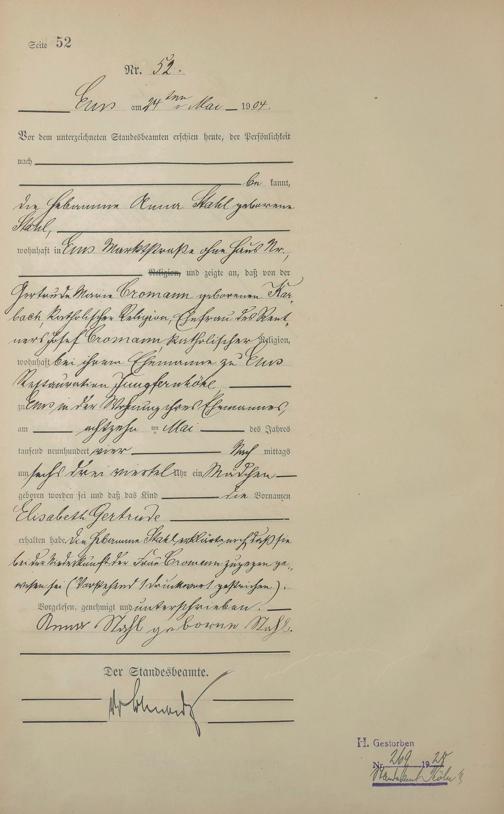 Seite 52
Nr. 52.
Ems am 24ten Mai 1904.
Vor dem unterzeichneten Standesbeamten erschien heute, der Persönlichkeit
nach
be kannt,
die Hebamme Anna Stahl geborene
Stahl,
wohnhaft in Ems Marktstraße ohne Haus Nr.,
Religion, und zeigte an, daß von der
Gertrude Marie Cromann geborenen Kar-
bach, katholischer Religion, Ehefrau des Rent-
ners Josef Cromann katholischer Religion,
wohnhaft bei ihrem Ehemanne zu Ems
Restauration Jungfernhöhe,
zu Ems in der Wohnung ihres Ehemannes
am achtzehn ten Mai des Jahres
tausend neunhundert vier Nach mittags
um sechs drei viertel Uhr ein Mädchen
geboren worden sei und daß das Kind die Vornamen
Elisabeth Gertrude
erhalten habe. Die Hebamme Stahl erklärte, noch daß sie
bei der Niederkunft der Frau Cromann zugegen ge-
wesen sei (Vorstehend 1 Druckwort gestrichen).
Vorgelesen, genehmigt und unterschrieben.
Anna Stahl geborene Stahl.
Der Standesbeamte.
H. Gestorben
Nr. 269 19 28
Standesamt Köln